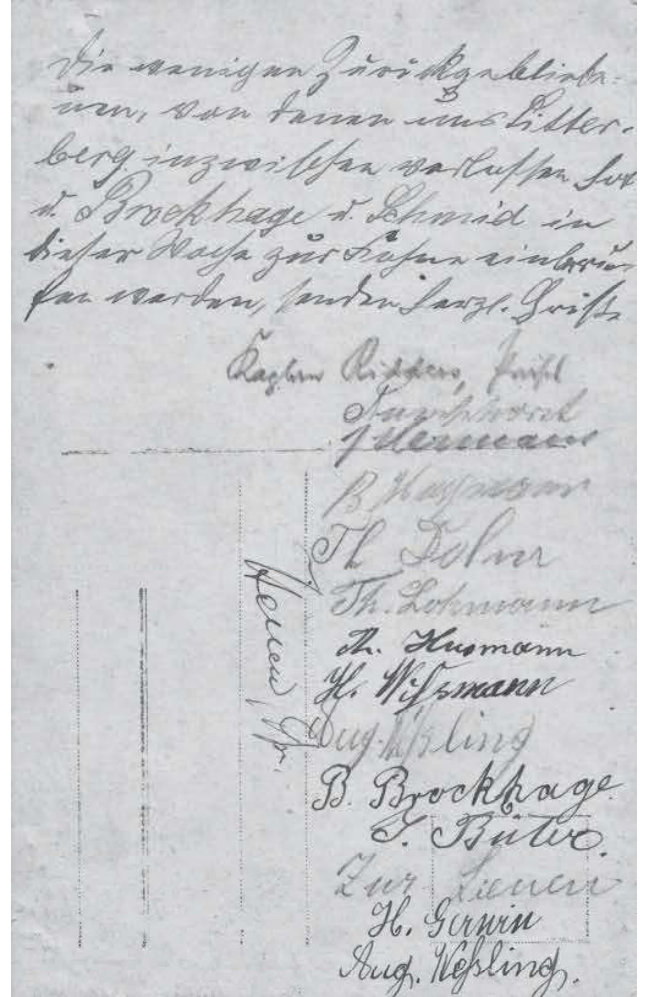 Die wenigen Zurückgebliebe-
nen, von denen uns Litter-
berg inzwischen verlassen hat
u. Brockhage u. Schmid in
dieser Woche zur Fahne einberu-
fen werden, senden herzl. Grüße
Kaplan Ridders,
J. Hermans
B.
Th.
Th. Lohmann
Th. Husmann
H. Wißmann
Aug. Weßling
B. Brockhage.
J. Büter.
Zur Lienen
H. Gerwin
Aug. Weßling.